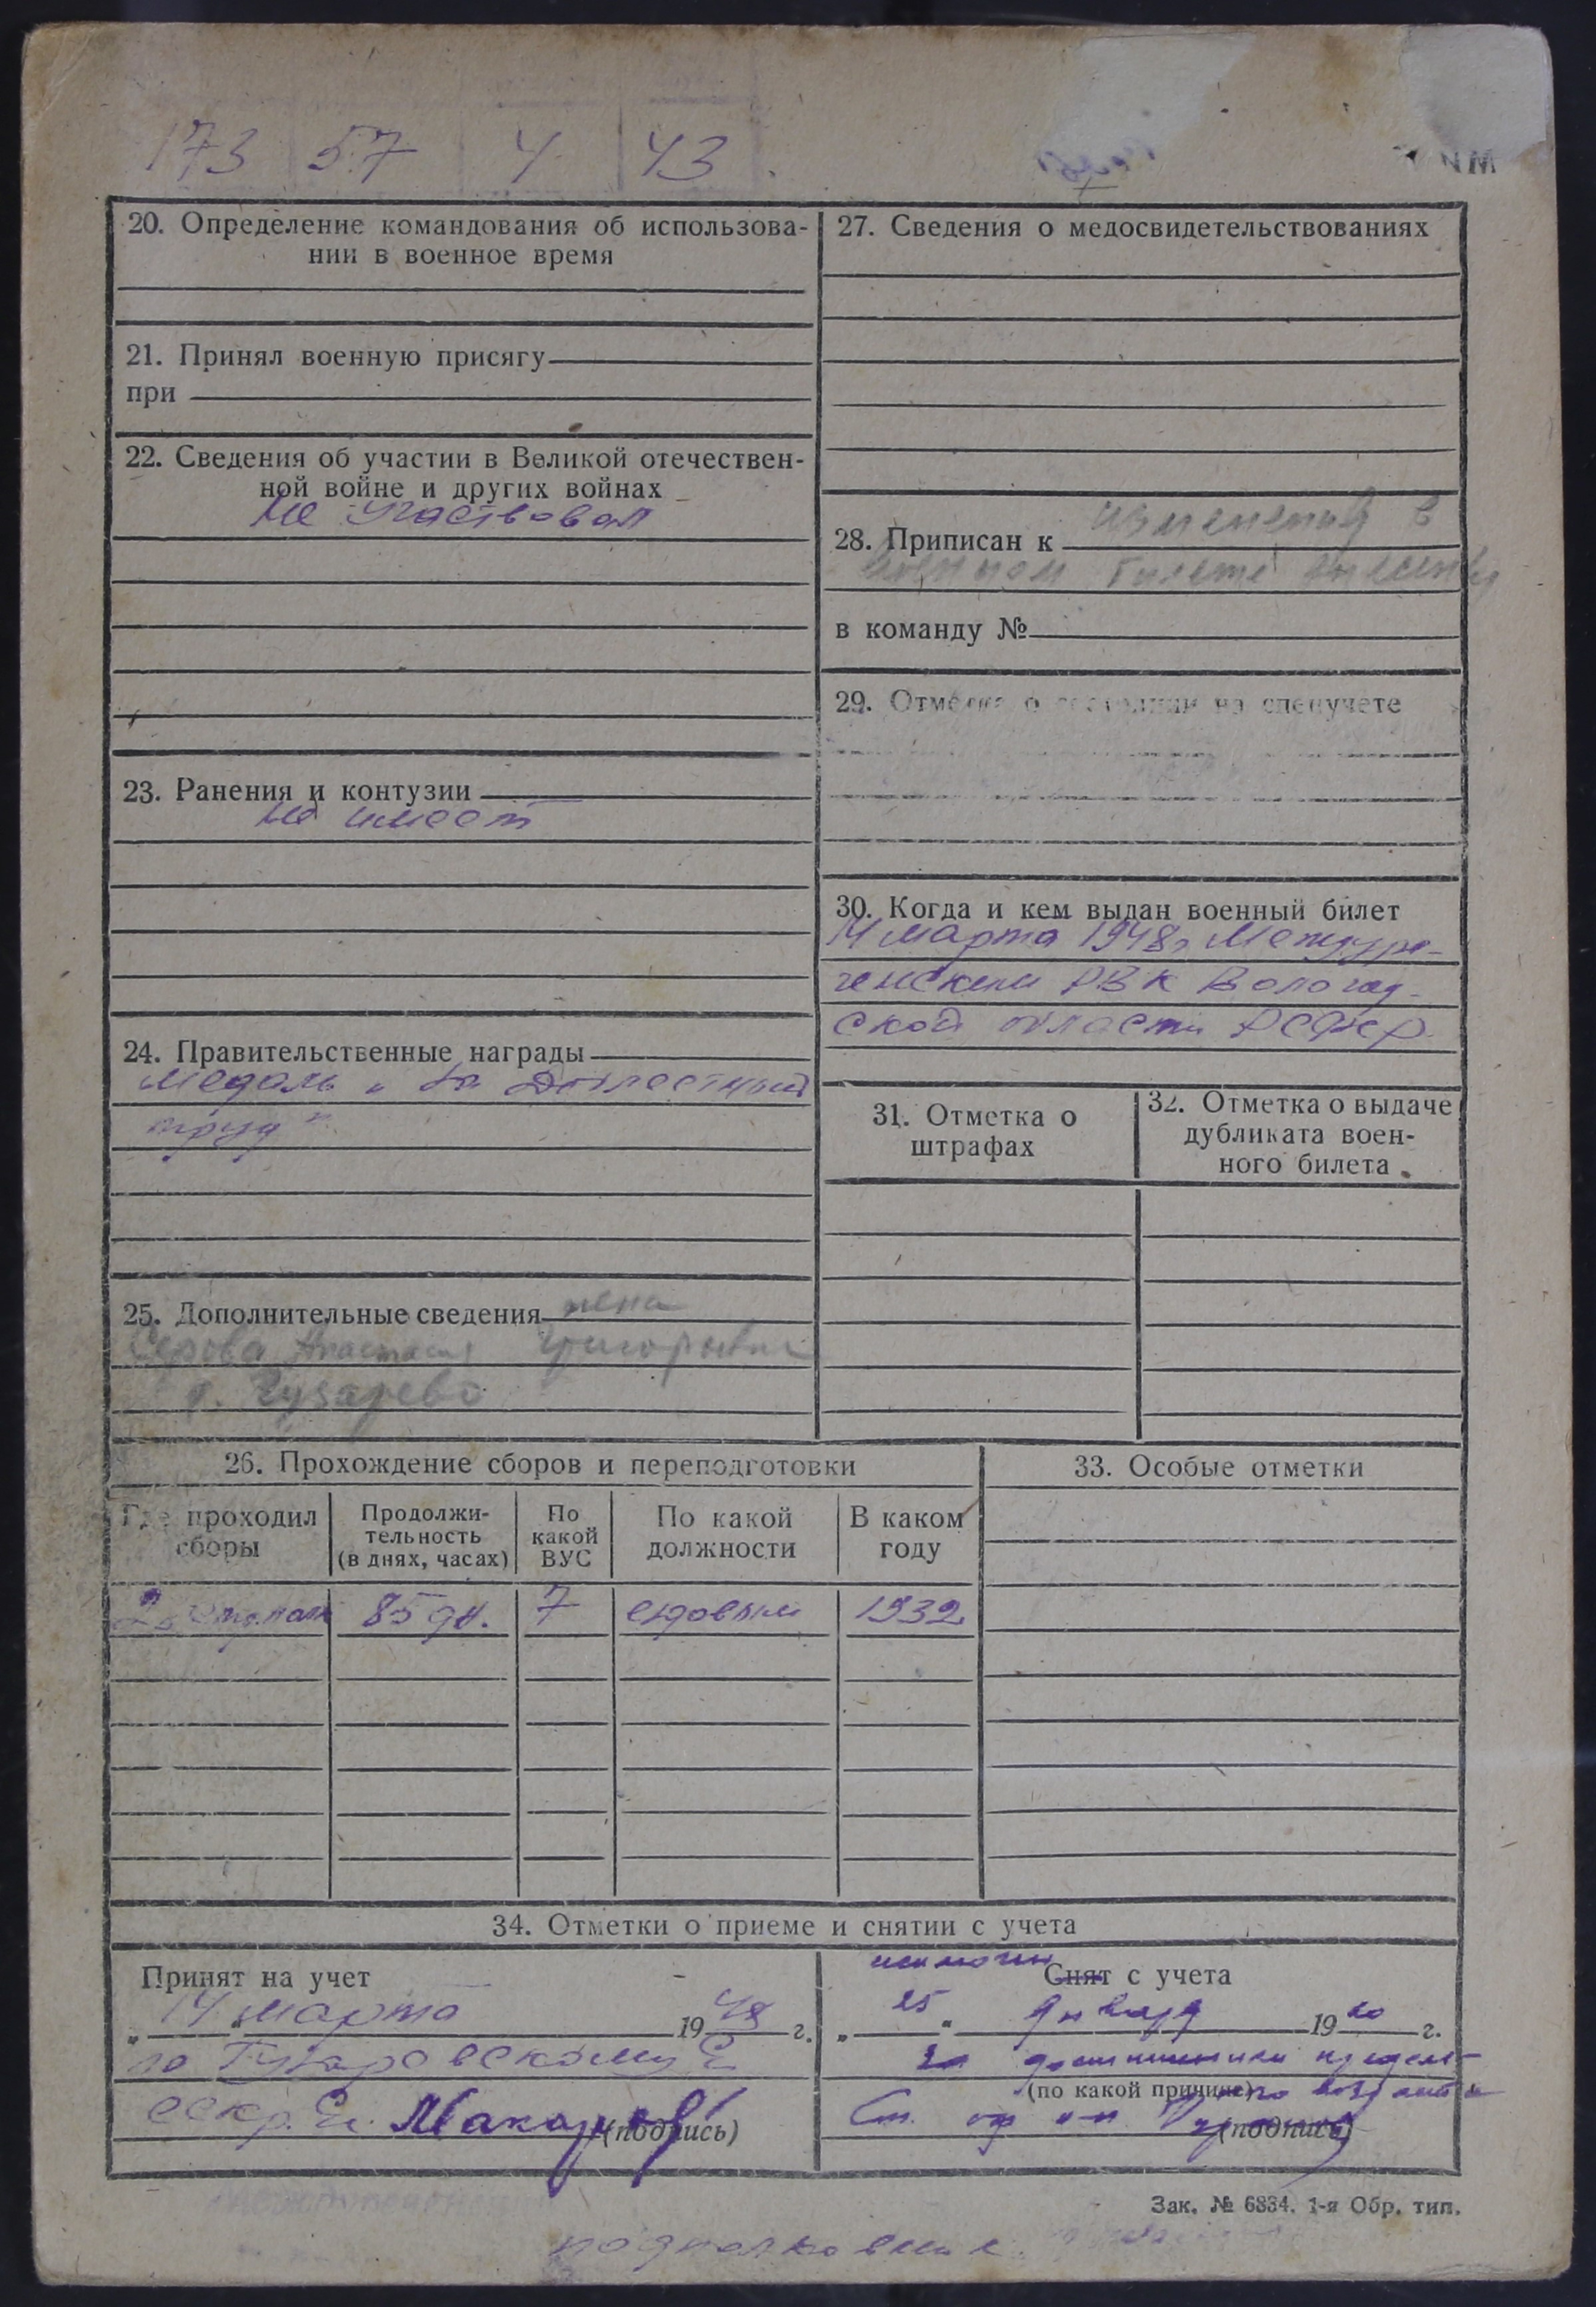 173 57 4 43
20. Определение командования об использова-
нии в военное время
21. Принял военную присягу
при
22. Сведения об участии в Великой отечествен-
ной войне и других войнах
Не участвовал
23. Ранения и контузии
не имеет
24. Правительственные награды
Медаль „За Доблестный
труд"
25. Дополнительные сведения жена
Серова Анастасия Григорьевна
26. Прохождение сборов и переподготовки
Где проходил
сборы
Продолжи-
тельность
(в днях, часах)
По
какой
ВУС
По какой
должности
В каком
году
85 дн. 7 ездовым 1932
27. Сведения о медосвидетельствованиях
28. Приписан к изменения в
военном билете внесены
в команду №
29. Отметка о состоянии на спецучете
30. Когда и кем выдан военный билет
14 марта 1948г Междуре-
ченским РВК Вологод-
ской области РСФСР
31. Отметка о
штрафах
32. Отметка о выдаче
дубликата воен-
ного билета
33. Особые отметки
34. Отметки о приеме и снятии с учета
Принят на учет
„14" марта 1948 г.
по
секр. Макаров
(подпись)
исключен
Снят с учета
„25" января 1960 г.
за достижением предель-
(по какой причине) ного возраста
Ст.
(подпись)
Зак. № 6834. 1-я Обр. тип.
подполковник